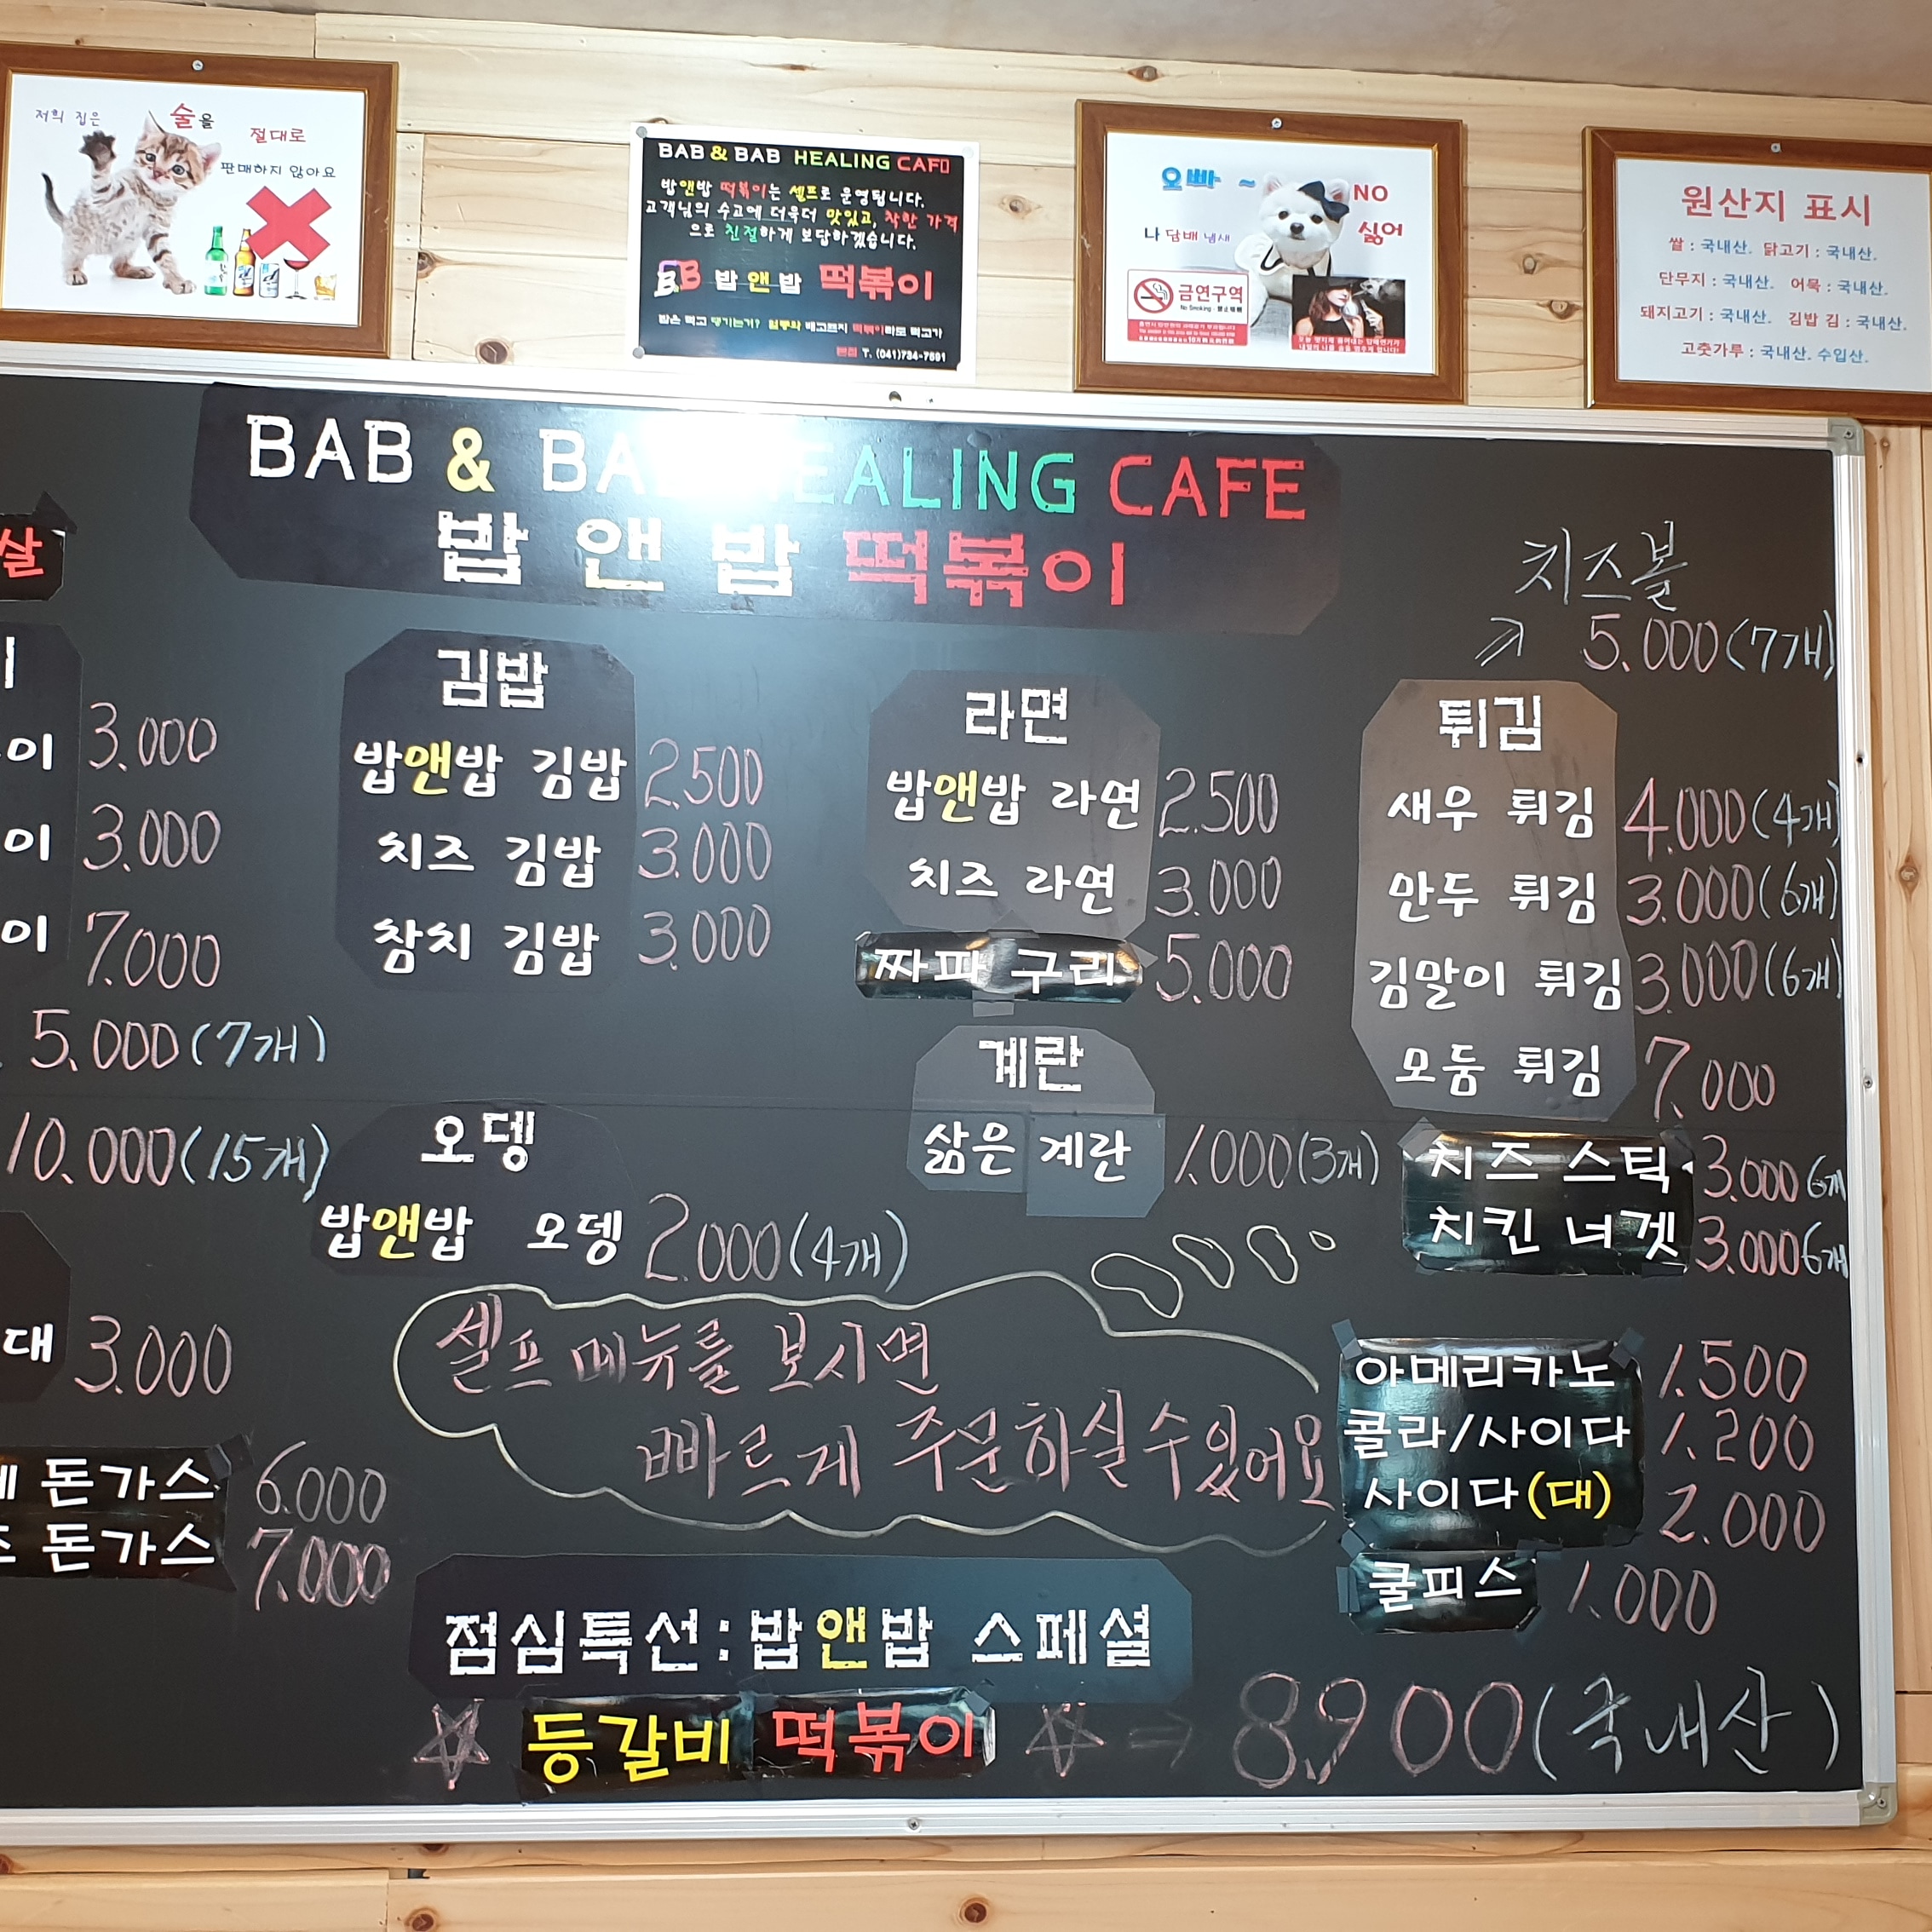 저희 집은 술을 절대로
판매하지 않아요
BAB & BAB HEALING CAF
밥앤밥 떡볶이는 셀프로 운영됩니다.
고객님의 수고에 더욱더 맛있고, 착한 가격
으로 친절하게 보답하겠습니다.
BB 밥 앤 밥 떡볶이
본점 T. (041)734-7691
오빠~ NO
나 담배 냄새 싫어
금연구역
No Smoking
원산지 표시
쌀 : 국내산. 닭고기 : 국내산.
단무지 : 국내산. 어묵 : 국내산.
돼지고기 : 국내산. 김밥 김 : 국내산.
고춧가루 : 국내산. 수입산.
BAB & BAB HEALING CAFE
밥 앤 밥 떡볶이
살
이 3.000
이 3.000
이 7.000
5.000(7개)
10.000(15개)
대 3.000
돈가스 6.000
돈가스 7.000
김밥
밥앤밥 김밥 2.500
치즈 김밥 3.000
참치 김밥 3.000
오뎅
밥앤밥 오뎅 2.000(4개)
라면
밥앤밥 라면 2.500
치즈 라면 3.000
짜파구리 5.000
계란
삶은 계란 1.000(3개)
치즈볼
↗ 5.000(7개)
튀김
새우 튀김 4.000(4개)
만두 튀김 3.000(6개)
김말이 튀김 3.000(6개)
모둠 튀김 7.000
치즈 스틱 3.000 6개
치킨 너겟 3.000 6개
셀프 메뉴를 보시면
빠르게 주문하실수있어요
아메리카노 1.500
콜라/사이다 1.200
사이다(대) 2.000
쿨피스 1.000
점심특선:밥앤밥 스페셜
☆ 등갈비 떡볶이 ☆ ⇒ 8.900(국내산)